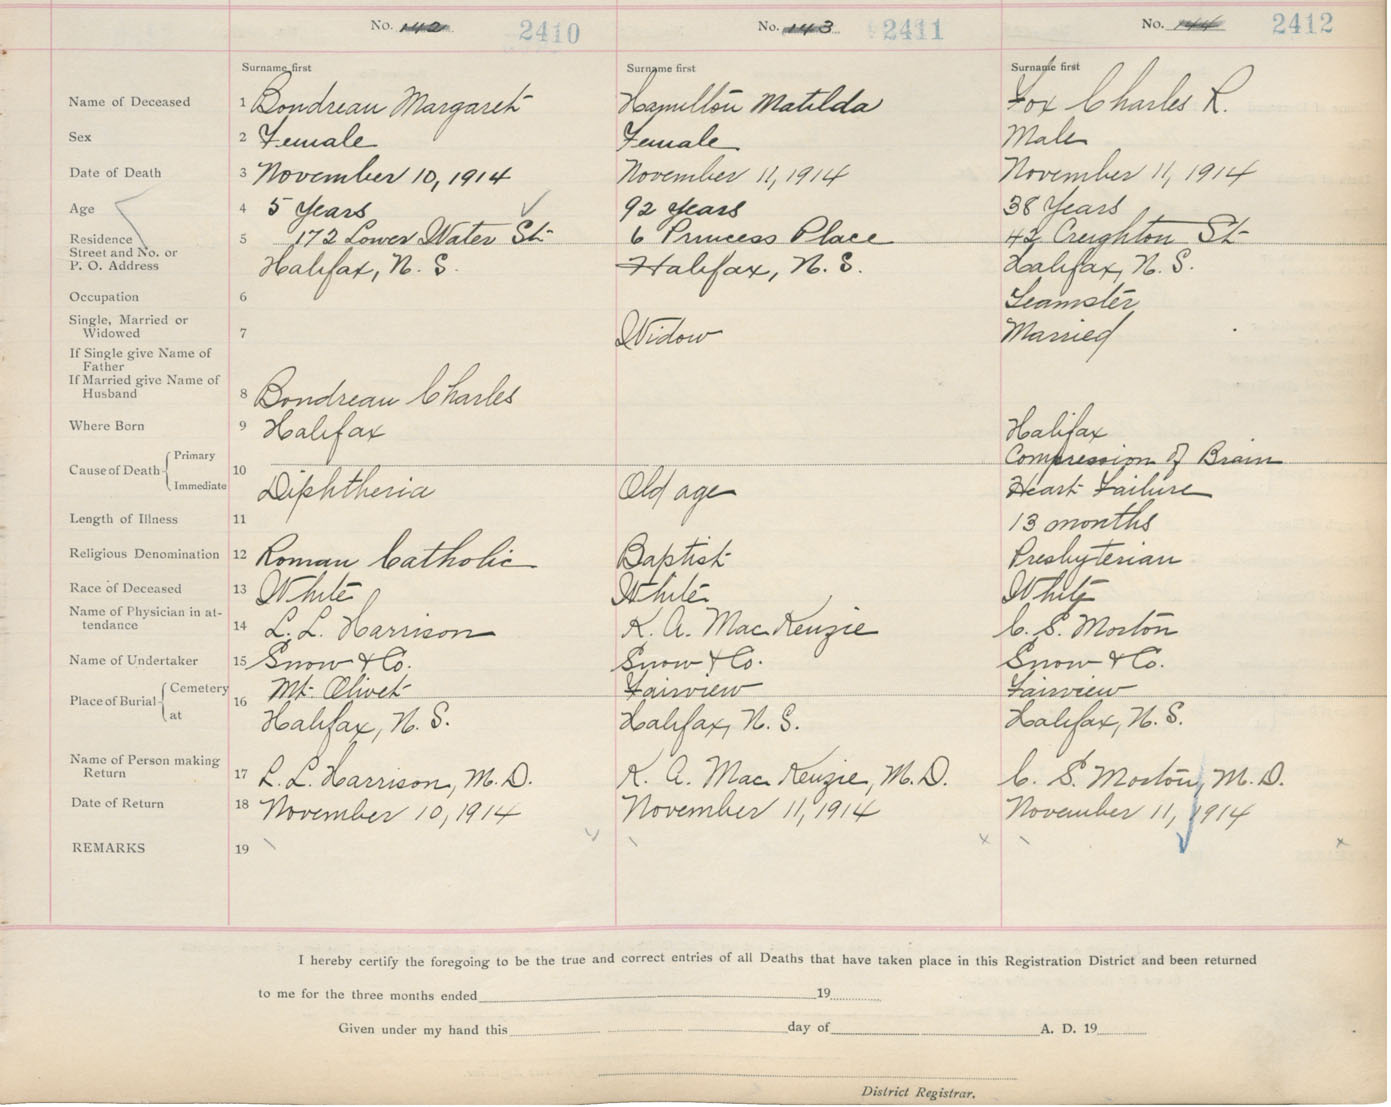 No. 142 2410 No. 143 2411 No. 144 2412
Surname first Surname first Surname first
Name of Deceased 1 Bondreau Margaret Hamilton Matilda Fox Charles R.
Sex 2 Female Female Male
Date of Death 3 November 10, 1914 November 11, 1914 November 11, 1914
Age 4 5 Years 92 Years 38 Years
Residence 5 172 Lower Water St 6 Princess Place 42 Creighton St
Street and No. or
P. O. Address Halifax, N. S. Halifax, N. S. Halifax, N. S.
Occupation 6 Teamster
Single, Married or
Widowed 7 Widow Married
If Single give Name of
Father
If Married give Name of
Husband 8 Bondreau Charles
Where Born 9 Halifax Halifax
Cause of Death Primary 10 Compression of Brain
Immediate Diphtheria Old age Heart Failure
Length of Illness 11 13 months
Religious Denomination 12 Roman Catholic Baptist Presbyterian
Race of Deceased 13 White White White
Name of Physician in at-
tendance 14 L. L. Harrison K. A. MacKenzie C. S. Morton
Name of Undertaker 15 Snow & Co. Snow & Co. Snow & Co.
Place of Burial Cemetery 16 Mt. Olivet Fairview Fairview
at Halifax, N. S. Halifax, N. S. Halifax, N. S.
Name of Person making
Return 17 L. L. Harrison, M. D. K. A. MacKenzie, M. D. C. S. Morton, M. D.
Date of Return 18 November 10, 1914 November 11, 1914 November 11, 1914
REMARKS 19
I hereby certify the foregoing to be the true and correct entries of all Deaths that have taken place in this Registration District and been returned
to me for the three months ended 19
Given under my hand this day of A. D. 19
District Registrar.